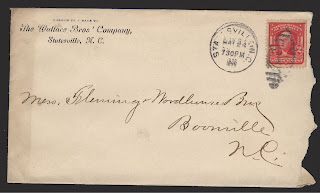 The Wallace Bros' Company,
Statesville, N. C.
STATESVILLE N.C.
7 30 PM
Mess. Fleming & Woodhouse Bros
Boonville
N.C.